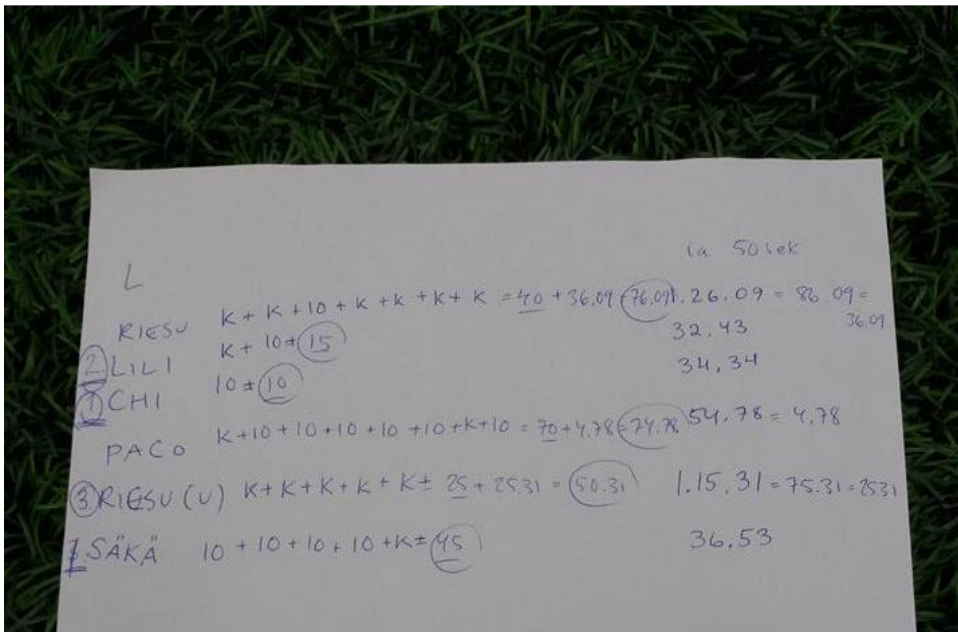 L
ia 50 sek
RIESU K + K + 10 + K + K + K + K = 40 + 36.09 = 76.09 1.26.09 = 86.09 =
36.09
2 LILI K + 10 = 15 32.43
1 CHI 10 = 10 34,34
PACO K+10+10+10+10+10+K+10 = 70+4.78=74.78 54.78 = 4.78
3. RIESU (U) K+K+K+K+K= 25 + 25.31 = 50.31 1.15.31 = 75.31 = 25.31
1. SÄKÄ 10 + 10 + 10 + 10 + K = 45 36.53